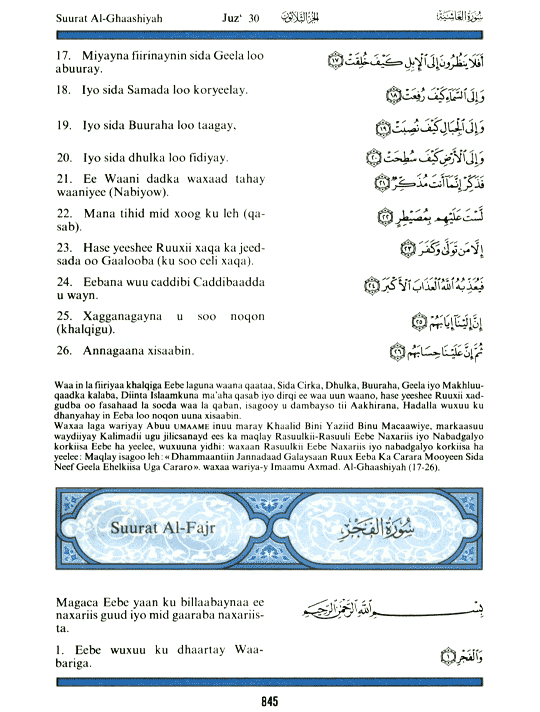 Suurat Al-Ghaashiyah Juz' 30 الجزء الثلاثون سورة الغاشية
17. Miyayna fiirinaynin sida Geela loo
abuuray.
أَفَلَا يَنظُرُونَ إِلَى الْإِبِلِ كَيْفَ خُلِقَتْ ١٧
18. Iyo sida Samada loo koryeelay.
وَإِلَى السَّمَاءِ كَيْفَ رُفِعَتْ ١٨
19. Iyo sida Buuraha loo taagay,
وَإِلَى الْجِبَالِ كَيْفَ نُصِبَتْ ١٩
20. Iyo sida dhulka loo fidiyay.
وَإِلَى الْأَرْضِ كَيْفَ سُطِحَتْ ٢٠
21. Ee Waani dadka waxaad tahay
waaniyee (Nabiyow).
فَذَكِّرْ إِنَّمَا أَنتَ مُذَكِّرٌ ٢١
22. Mana tihid mid xoog ku leh (qa-
sab).
لَّسْتَ عَلَيْهِم بِمُصَيْطِرٍ ٢٢
23. Hase yeeshee Ruuxii xaqa ka jeed-
sada oo Gaalooba (ku soo celi xaqa).
إِلَّا مَن تَوَلَّىٰ وَكَفَرَ ٢٣
24. Eebana wuu caddibi Caddibaadda
u wayn.
فَيُعَذِّبُهُ اللَّهُ الْعَذَابَ الْأَكْبَرَ ٢٤
25. Xagganagayna u soo noqon
(khalqigu).
إِنَّ إِلَيْنَا إِيَابَهُمْ ٢٥
26. Annagaana xisaabin.
ثُمَّ إِنَّ عَلَيْنَا حِسَابَهُم ٢٦
Waa in la fiiriyaa khalqiga Eebe laguna waana qaataa, Sida Cirka, Dhulka, Buuraha, Geela iyo Makhluu-
qaadka kalaba, Diinta Islaamkuna ma'aha qasab iyo dirqi ee waa uun waano, hase yeeshee Ruuxii xad-
gudba oo fasahaad la socda waa la qaban, isagooy u dambayso tii Aakhirana, Hadalla wuxuu ku
dhanyahay in Eeba loo noqon uuna xisaabin.
Waxaa laga wariyay Abuu UMAAME inuu maray Khaalid Bini Yaziid Binu Macaawiye, markaasuu
waydiiyay Kalimadii ugu jilicsanayd ees ka maqlay Rasuulkii-Rasuulii Eebe Naxariis iyo Nabadgalyo
korkiisa Eebe ha yeelee, wuxuuna yidhi: waxaan Rasuulkii Eebe Naxariis iyo nabadgalyo korkiisa ha
yeelee: Maqlay isagoo leh: «Dhammaantiin Jannadaad Galaysaan Ruux Eeba Ka Carara Mooyeen Sida
Neef Geela Ehelkiisa Uga Cararo». waxaa wariya-y Imaamu Axmad. Al-Ghaashiyah (17-26).
Suurat Al-Fajr سورة الفجر
Magaca Eebe yaan ku billaabaynaa ee
naxariis guud iyo mid gaaraba naxariis-
ta.
بِسْمِ اللَّهِ الرَّحْمَٰنِ الرَّحِيمِ
1. Eebe wuxuu ku dhaartay Waa-
bariga.
وَالْفَجْرِ ١
845